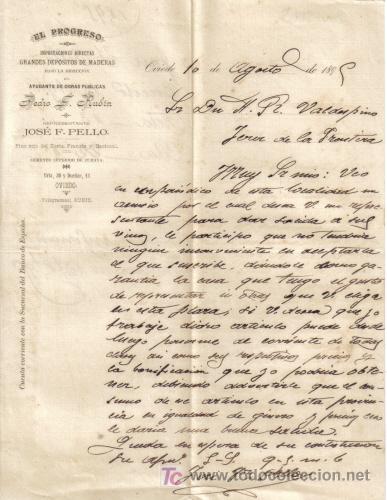 EL PROGRESO
IMPORTACIONES DIRECTAS
GRANDES DEPÓSITOS DE MADERAS
BAJO LA DIRECCIÓN
DEL
AYUDANTE DE OBRAS PÚBLICAS
Pedro F. Rubín
REPRESENTANTE
JOSÉ F. PELLO
Pino rojo del Norte, Francés y Nacional.
CEMENTO SUPERIOR DE ZUMAYA
Uría, 30 y
OVIEDO
Telegramas: RUBIN.
Cuenta corriente con la Sucursal del Banco de España.
Oviedo 10 de Agosto de 1895
Sr Dn A. R. Valdespino
Jerez de la Frontera
Muy Sr mio: Veo
en un periódico de esta localidad un
anuncio por el cual desea V. un repre-
sentante para dar salida a sus
vinos, le participo que no tendria
ningun inconveniente en aceptarla
el que suscribe, dandole como ga-
rantia la casa que tengo el gusto
de representar u otras que V. elija
en esta plaza; si V. desea que yo
trabaje dicho articulo puede desde
luego ponerme al corriente de todas
clases asi como sus respectivos precios y
la bonificacion que yo podria obte-
ner, debiendo advertirle que el con-
sumo de ese articulo en esta provin-
cia en igualdad de generos y precios
le daria una buena salida.
Queda en espera de su contestacion
su afmo. S. S. q. s. m. b.
José F. Pello
todocoleccion.net